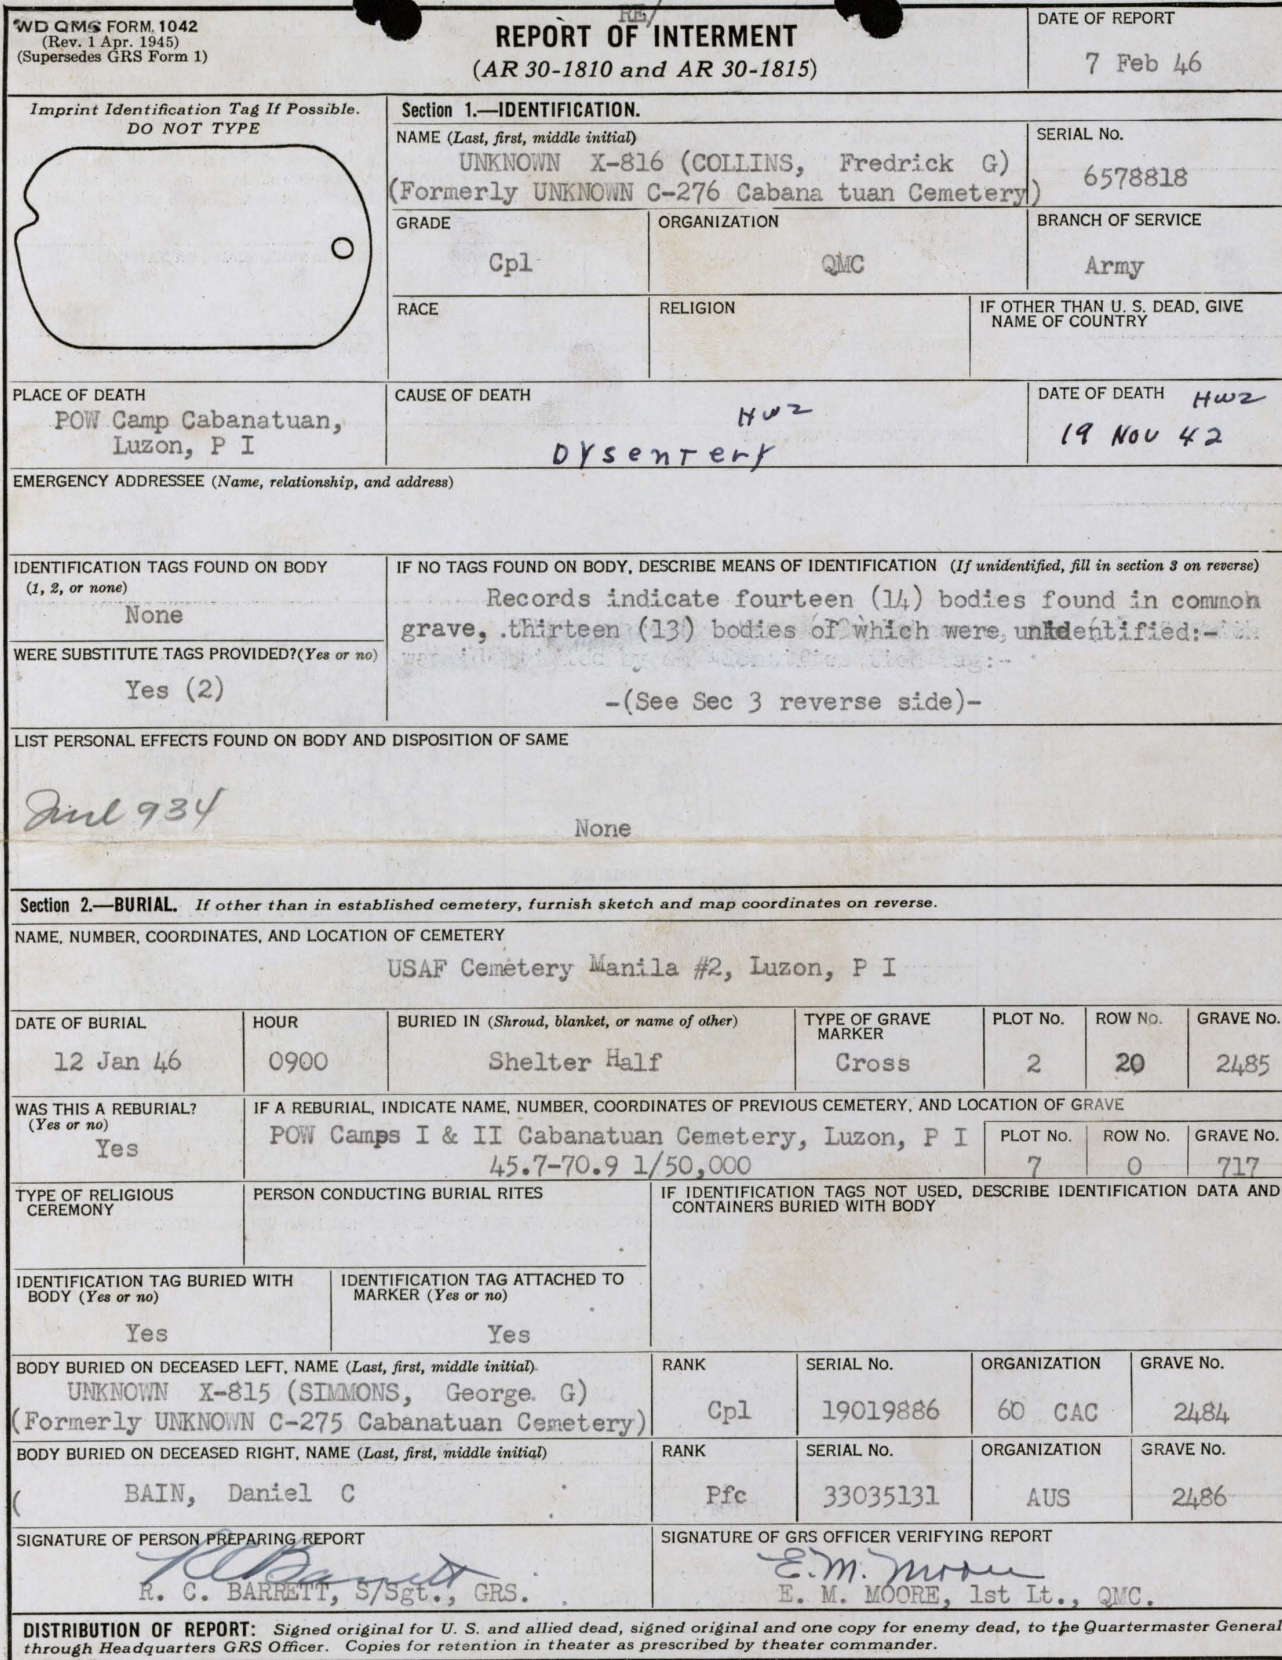 RE/
WD QMS FORM 1042
(Rev. 1 Apr. 1945)
(Supersedes GRS Form 1)
REPORT OF INTERMENT
(AR 30-1810 and AR 30-1815)
DATE OF REPORT
7 Feb 46
Imprint Identification Tag If Possible.
DO NOT TYPE
Section 1.—IDENTIFICATION.
NAME (Last, first, middle initial)
UNKNOWN X-816 (COLLINS, Fredrick G)
(Formerly UNKNOWN C-276 Cabana tuan Cemetery)
SERIAL No.
6578818
GRADE
Cpl
ORGANIZATION
QMC
BRANCH OF SERVICE
Army
RACE
RELIGION
IF OTHER THAN U. S. DEAD, GIVE
NAME OF COUNTRY
PLACE OF DEATH
POW Camp Cabanatuan,
Luzon, P I
CAUSE OF DEATH
HWZ
Dysentery
DATE OF DEATH
HWZ
19 Nov 42
EMERGENCY ADDRESSEE (Name, relationship, and address)
IDENTIFICATION TAGS FOUND ON BODY
(1, 2, or none)
None
IF NO TAGS FOUND ON BODY, DESCRIBE MEANS OF IDENTIFICATION (If unidentified, fill in section 3 on reverse)
Records indicate fourteen (14) bodies found in common
grave, .thirteen (13) bodies of which were, unidentified:-
-(See Sec 3 reverse side)-
WERE SUBSTITUTE TAGS PROVIDED?(Yes or no)
Yes (2)
LIST PERSONAL EFFECTS FOUND ON BODY AND DISPOSITION OF SAME
934
None
Section 2.—BURIAL. If other than in established cemetery, furnish sketch and map coordinates on reverse.
NAME, NUMBER, COORDINATES, AND LOCATION OF CEMETERY
USAF Cemetery Manila #2, Luzon, P I
DATE OF BURIAL
12 Jan 46
HOUR
0900
BURIED IN (Shroud, blanket, or name of other)
Shelter Half
TYPE OF GRAVE
MARKER
Cross
PLOT No.
2
ROW No.
20
GRAVE No.
2485
WAS THIS A REBURIAL?
(Yes or no)
Yes
IF A REBURIAL, INDICATE NAME, NUMBER, COORDINATES OF PREVIOUS CEMETERY, AND LOCATION OF GRAVE
POW Camps I & II Cabanatuan Cemetery, Luzon, P I
45.7-70.9 1/50,000
PLOT No.
7
ROW No.
0
GRAVE No.
717
TYPE OF RELIGIOUS
CEREMONY
PERSON CONDUCTING BURIAL RITES
IF IDENTIFICATION TAGS NOT USED, DESCRIBE IDENTIFICATION DATA AND
CONTAINERS BURIED WITH BODY
IDENTIFICATION TAG BURIED WITH
BODY (Yes or no)
Yes
IDENTIFICATION TAG ATTACHED TO
MARKER (Yes or no)
Yes
BODY BURIED ON DECEASED LEFT, NAME (Last, first, middle initial)
UNKNOWN X-815 (SIMMONS, George. G)
(Formerly UNKNOWN C-275 Cabanatuan Cemetery)
RANK
Cpl
SERIAL No.
19019886
ORGANIZATION
60 CAC
GRAVE No.
2484
BODY BURIED ON DECEASED RIGHT, NAME (Last, first, middle initial)
( BAIN, Daniel C
RANK
Pfc
SERIAL No.
33035131
ORGANIZATION
AUS
GRAVE No.
2486
SIGNATURE OF PERSON PREPARING REPORT
RCBarrett
R. C. BARRETT, S/Sgt., GRS.
SIGNATURE OF GRS OFFICER VERIFYING REPORT
E.M. Moore
E. M. MOORE, 1st Lt., QMC.
DISTRIBUTION OF REPORT: Signed original for U. S. and allied dead, signed original and one copy for enemy dead, to the Quartermaster General
through Headquarters GRS Officer. Copies for retention in theater as prescribed by theater commander.